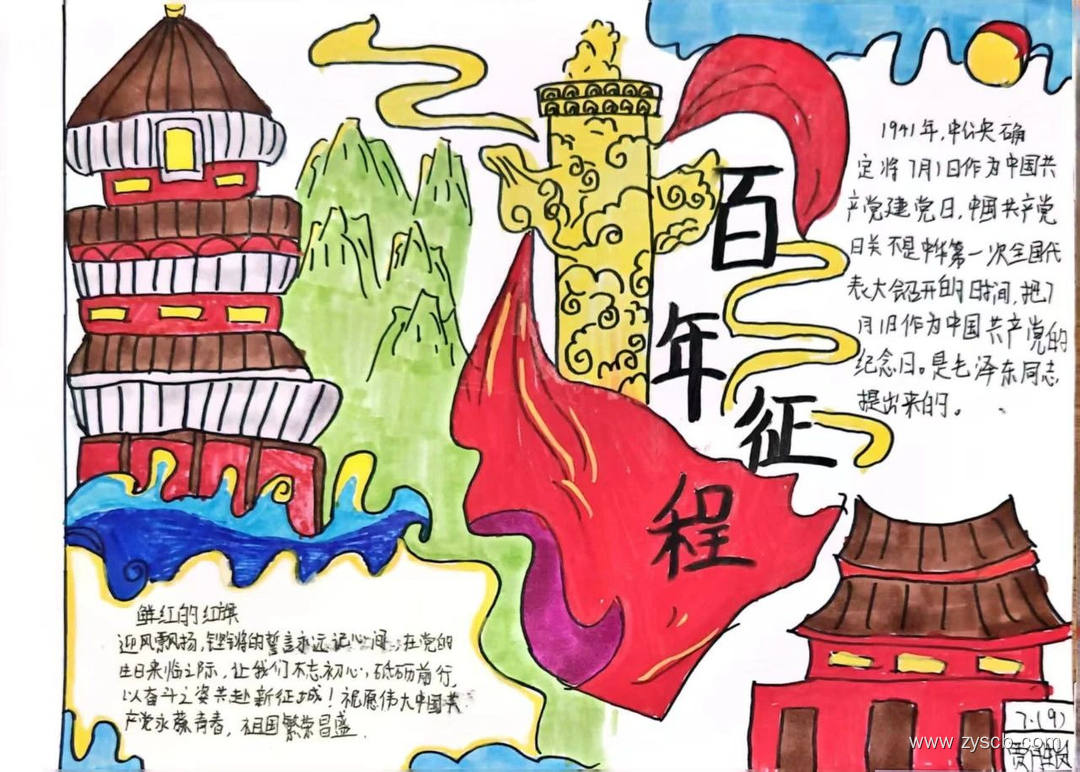 百年征程
1941年,中公央确
定将7月1日作为中国共
产党建党日,中国共产党
日关不是中华第一次全国代
表大会召开的日时间,把7
月1日作为中国共产党的
纪念日。是毛泽东同志
提出来的。
鲜红的红旗
迎风飘扬,铿锵的誓言永远记心间,在党的
生日来临之际,让我们不忘初心,砥砺前行,
以奋斗之姿共赴新征城!祝愿伟大中国共
产党永葆青春,祖国繁荣昌盛.
7.(9)
www.zyscb.com